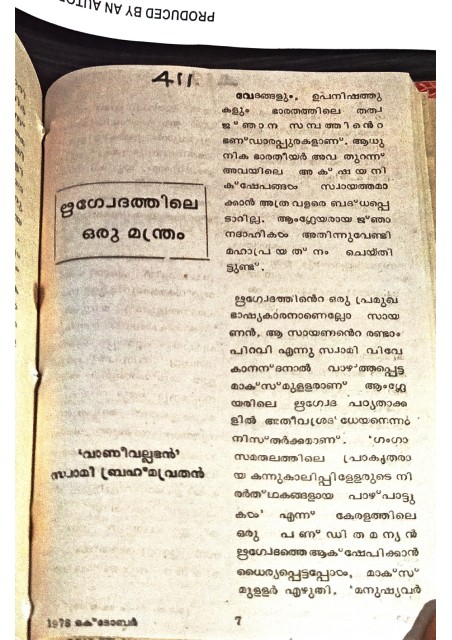 PRODUCED BY AN AUTO
411
ഋഗ്വേദത്തിലെ
ഒരു മന്ത്രം
'വാണീവല്ലഭൻ'
സ്വാമി ബ്രഹ്മവ്രതൻ
വേദങ്ങളും, ഉപനിഷത്തു
കളും ഭാരതത്തിലെ തത്വ
ജ്ഞാന സമ്പത്തിൻെറ
ഭണ്ഡാരപ്പുരകളാണ്. ആധു
നിക ഭാരതീയർ അവ തുറന്ന്
അവയിലെ അക്ഷയനി
ക്ഷേപങ്ങൾ സ്വായത്തമാ
ക്കാൻ അത്ര വളരെ ബദ്ധപ്പെ
ടാറില്ല. ആംഗ്ലേയരായ ജ്ഞാ
നദാഹികൾ അതിന്നുവേണ്ടി
മഹാപ്രയത്നം ചെയ്തി
ട്ടുണ്ട്.
ഋഗ്വേദത്തിൻെറ ഒരു പ്രമുഖ
ഭാഷ്യകാരനാണല്ലോ സായ
ണൻ. ആ സായണൻെറ രണ്ടാം
പിറവി എന്നു സ്വാമി വിവേ
കാനന്ദനാൽ വാഴ്ത്തപ്പെട്ട
മാക്സ്മുള്ളരാണ് ആംഗ്ലേ
യരിലെ ഋഗ്വേദ പഠിതാക്ക
ളിൽ അതീവശ്രദ്ധേയനെന്നു
നിസ്തർക്കമാണ്. 'ഗംഗാ
സമതലത്തിലെ പ്രാകൃതരാ
യ കന്നുകാലിപ്പിള്ളേരുടെ നി
രർത്ഥകങ്ങളായ പാഴ്പാട്ടു
കൾ' എന്ന് കേരളത്തിലെ
ഒരു പണ്ഡിതമന്യൻ
ഋഗ്വേദത്തെ ആക്ഷേപിക്കാൻ
ധൈര്യപ്പെട്ടപ്പോൾ, മാക്സ്
മുള്ളർ എഴുതി, 'മനുഷ്യവർ
1978 ഒക്ടോബർ
7